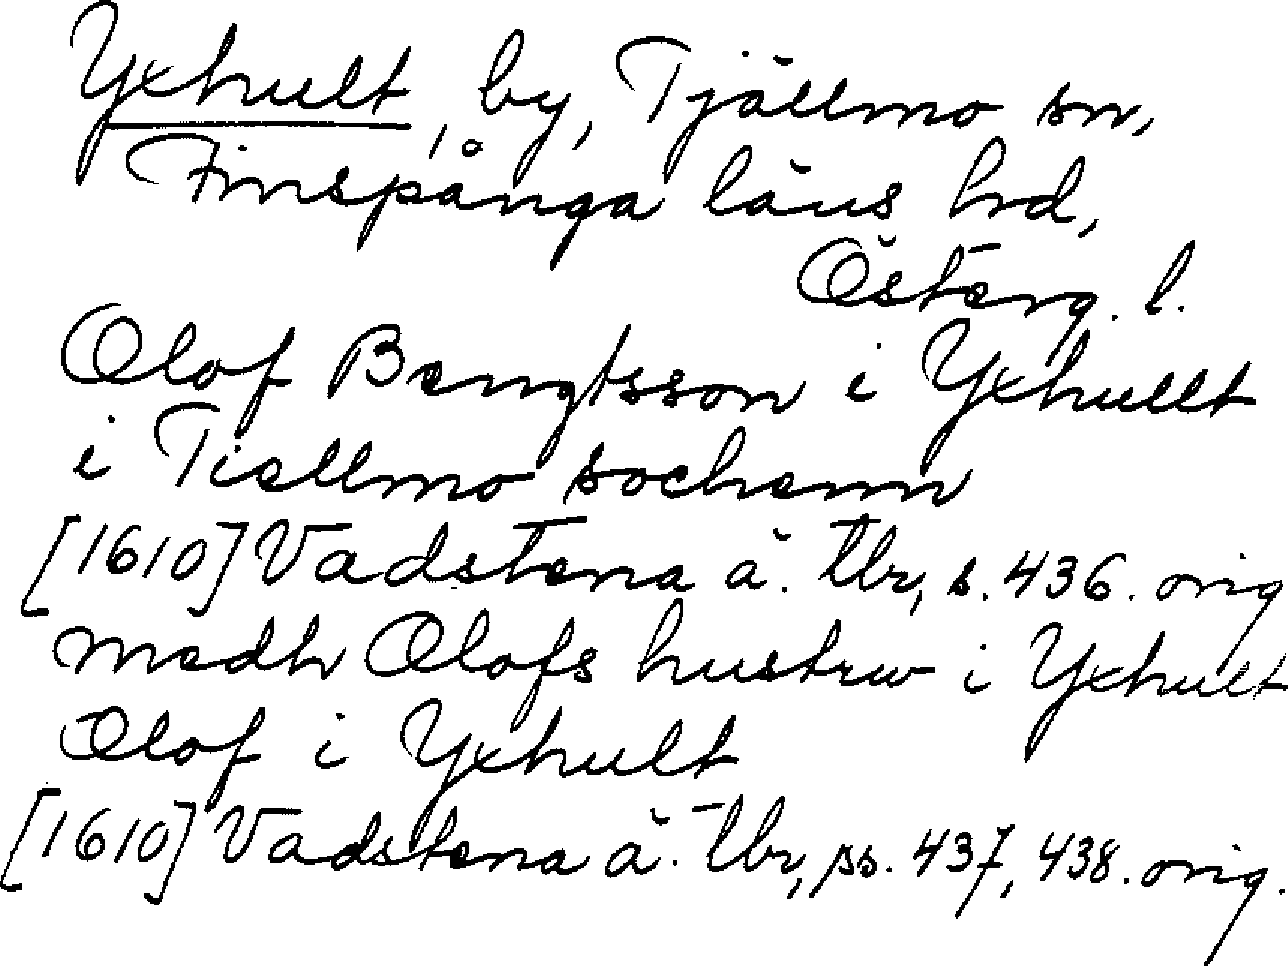 Yxhult, by, Tjällmo sn,
Finspånga läns hrd,
Österg. l.
Olof Bengtsson i Yxhullt
i Tiellmo sochenn
[1610] Vadstena ä. tbr, s. 436. orig
medh Olofs hustrw i Yxhult
Olof i Yxhult
[1610] Vadstena ä. tbr, ss. 437, 438. orig.